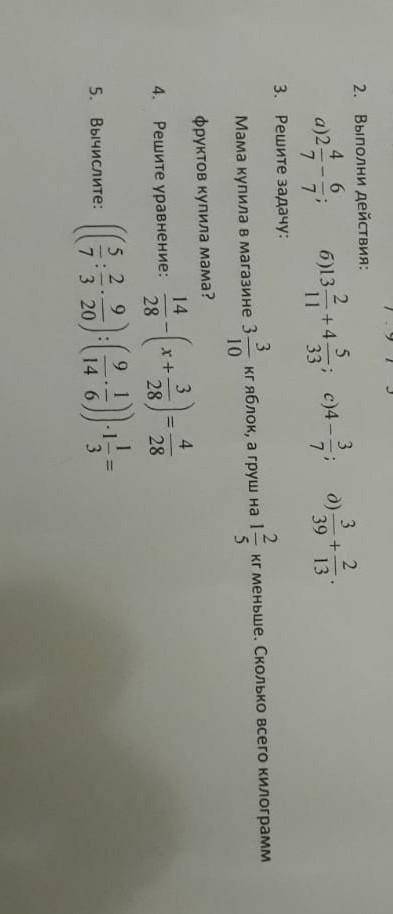 2. Выполни действия:
а) 2 4/7 − 6/7; б) 13 2/11 + 4 5/33; с) 4 − 3/7; д) 3/39 + 2/13.
3. Решите задачу:
Мама купила в магазине 3 3/10 кг яблок, а груш на 1 2/5 кг меньше. Сколько всего килограмм
фруктов купила мама?
4. Решите уравнение: 14/28 − (x + 3/28) = 4/28
5. Вычислите: ((5/7 : 2/3 · 9/20) : (9/14 · 1/6)) · 1 1/3 =